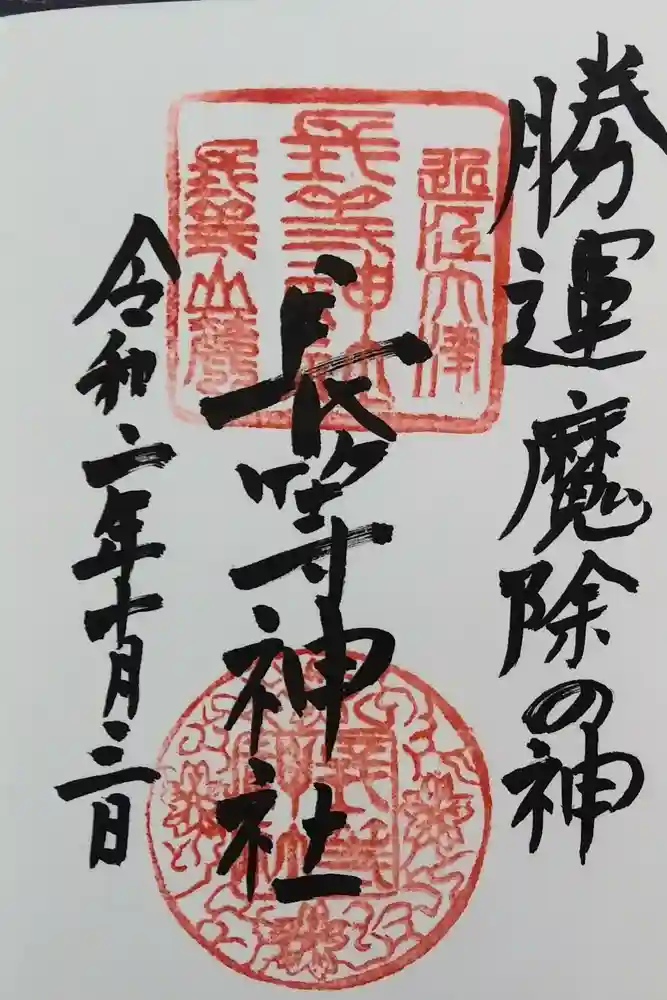 勝運魔除の神
長等神社
令和二年十月三日
近江大津
長等神社
長等山麓